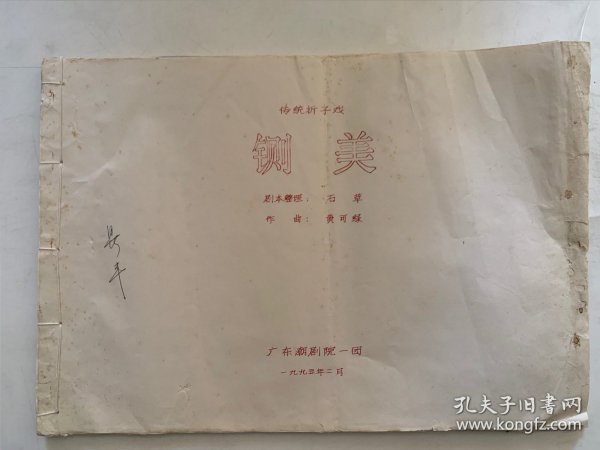 传统折子戏
铡美
剧本整理：石草
作曲：黄可绿
广东潮剧院一团
一九九五年二月
孔夫子旧书网
www.kongfz.com